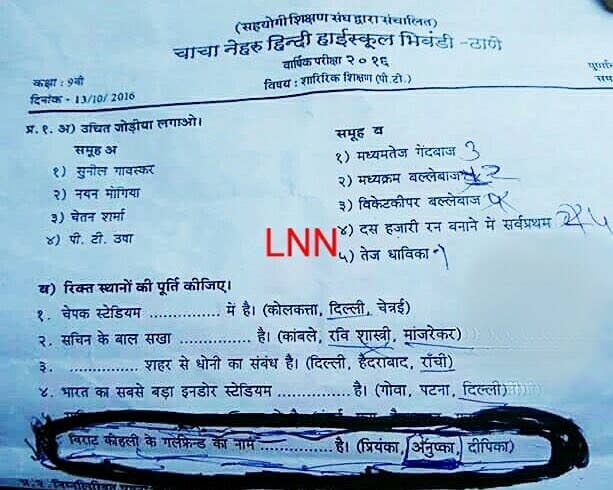 (सहयोगी शिक्षण संघ द्वारा संचालित)
चाचा नेहरु हिन्दी हाईस्कूल भिवंडी -ठाणे
वार्षिक परीक्षा २०१६
कक्षा : 9वी
विषय : शारिरिक शिक्षण (पी.टी.)
दिनांक - 13/10/ 2016
प्र.१. अ) उचित जोड़ीया लगाओ।
समूह अ
समूह ब
१) सुनील गावस्कर
१) मध्यमतेज गेंदबाज 3
२) नयन मोंगिया
२) मध्यक्रम बल्लेबाज 2
३) चेतन शर्मा
३) विकेटकीपर बल्लेबाज
४) पी. टी. उषा
४) दस हजारी रन बनाने में सर्वप्रथम
५) तेज धाविका
LNN
ब) रिक्त स्थानों की पूर्ति कीजिए।
१. चेपक स्टेडियम ............... में है। (कोलकत्ता, दिल्ली, चेन्नई)
२. सचिन के बाल सखा ............... है। (कांबले, रवि शास्त्री, मांजरेकर)
३. ............... शहर से धोनी का संबंध है। (दिल्ली, हैदराबाद, राँची)
४. भारत का सबसे बड़ा इनडोर स्टेडियम ............... है। (गोवा, पटना, दिल्ली)
विराट कोहली के गर्लफ्रेन्ड का नाम ............... है। (प्रियंका, अनुष्का, दीपिका)